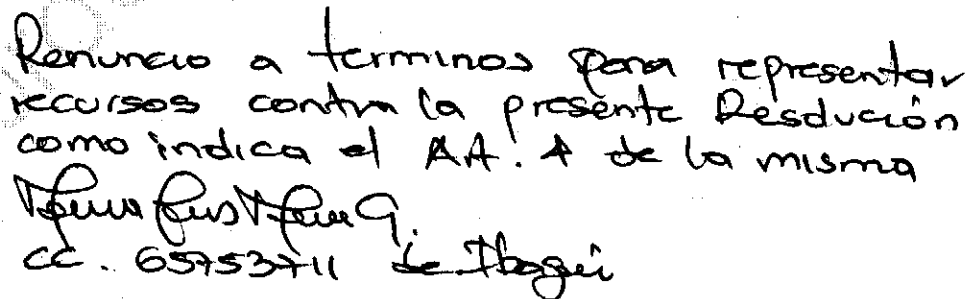 Renuncio a terminos para representar
recursos contra la presente Resolución
como indica el AA. 4 de la misma
CC. 65753711 de Ibagué